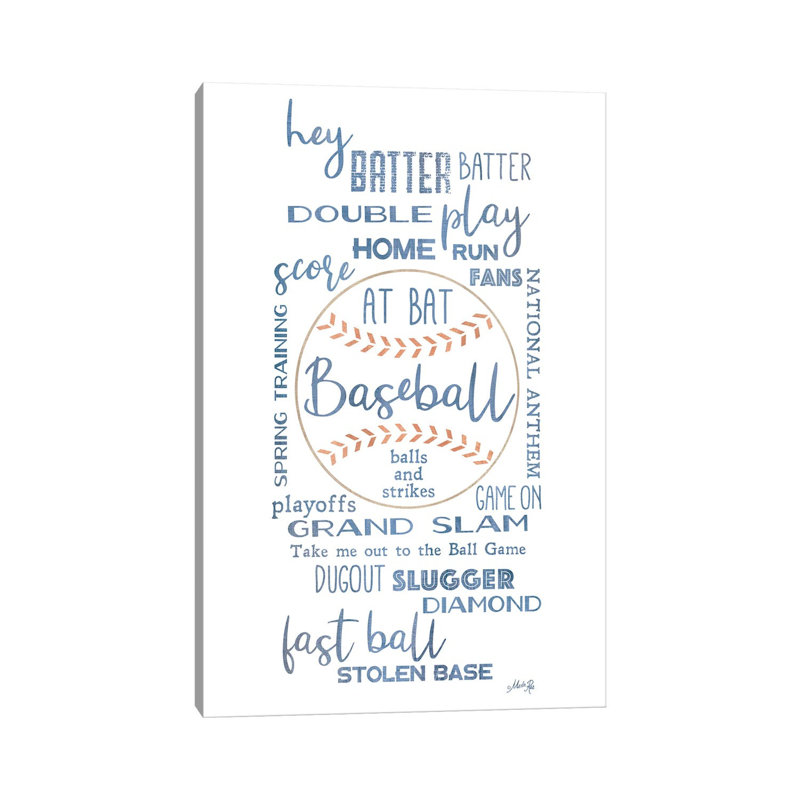 hey
BATTER BATTER
DOUBLE play
HOME RUN
score
FANS
SPRING TRAINING
NATIONAL ANTHEM
AT BAT
Baseball
balls
and
strikes
playoffs
GAME ON
GRAND SLAM
Take me out to the Ball Game
DUGOUT SLUGGER
DIAMOND
fast ball
STOLEN BASE
Marla Rae